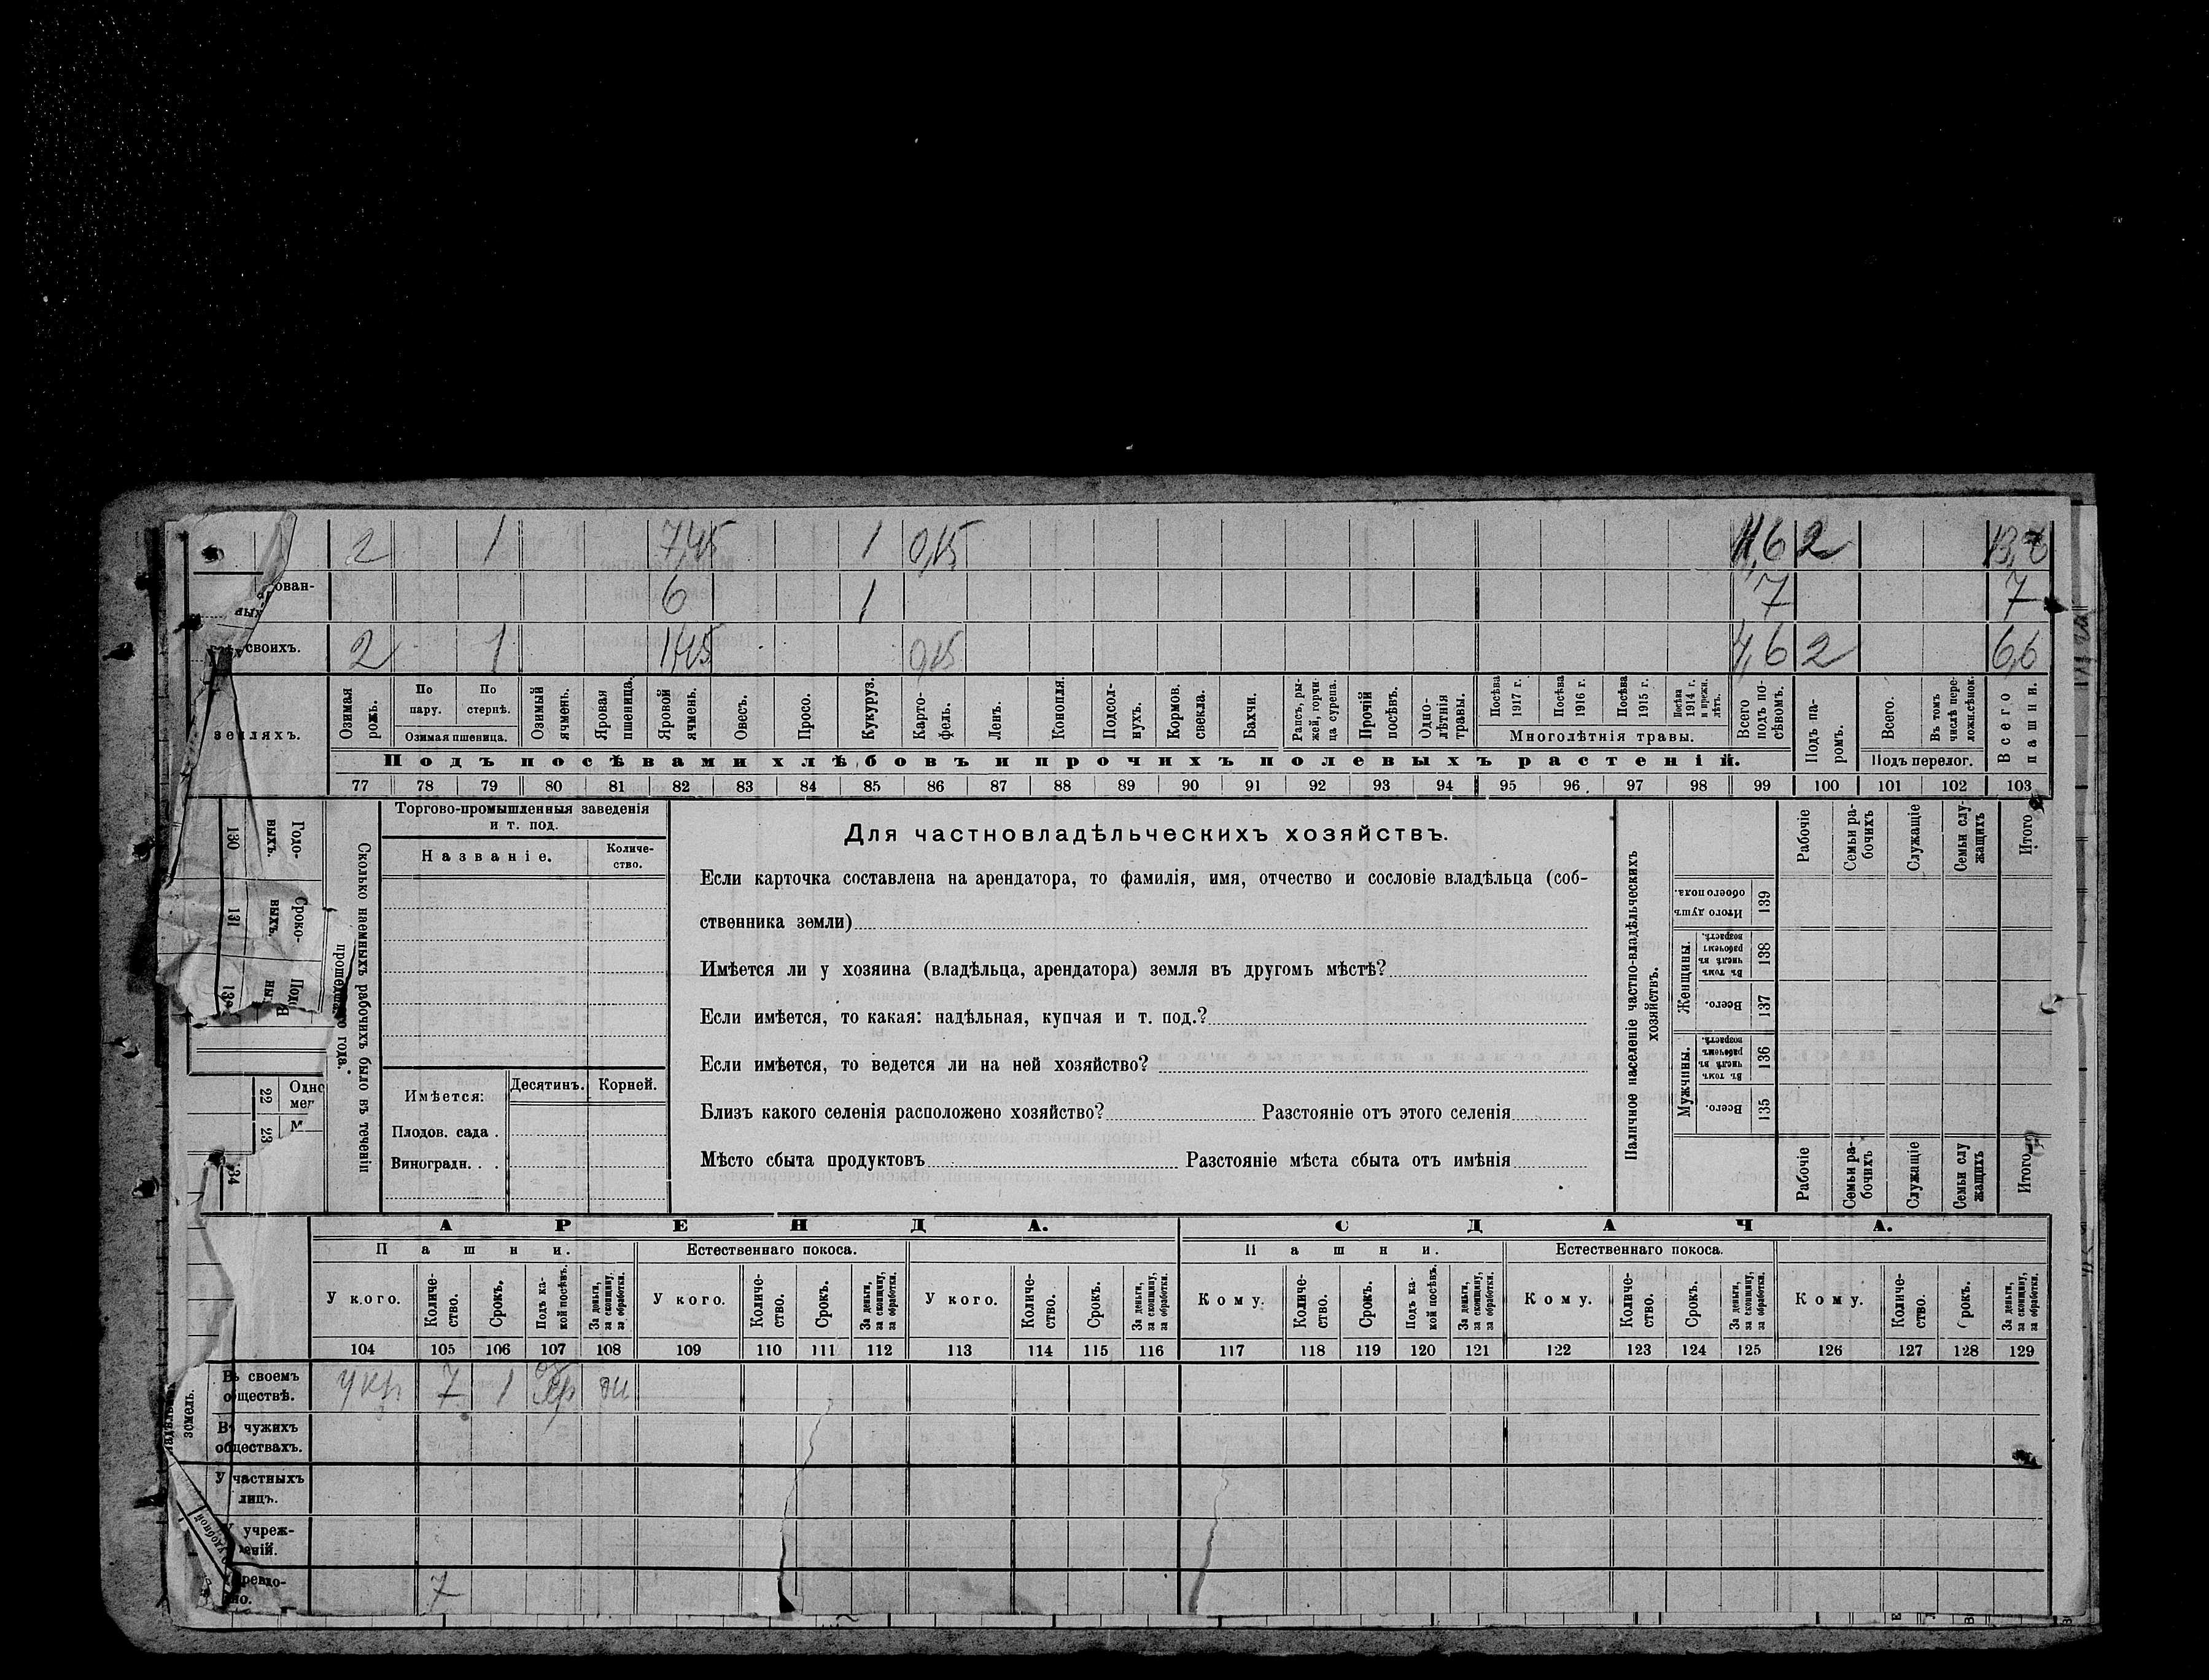 2 1 7,45 1 0,15 11,6 2 13,6
ован-
ныхъ 6 1 7 7
своихъ. 2 1 1,45 0,15 4,6 2 6,6
земляхъ.
Озимая рожь.
По пару.
По стернѣ.
Озимая пшеница.
Озимый ячмень.
Яровая пшеница.
Яровой ячмень.
Овесъ.
Просо.
Кукуруз.
Карто-
фель.
Ленъ.
Конопля.
Подсол-
нухъ.
Кормов. свекла.
Бахчи.
Рапсъ, ры-
жей, горчи-
ца сурепа.
Прочій посѣвъ.
Одно-
лѣтнія травы.
Посѣва 1917 г.
Посѣва 1916 г.
Посѣва 1915 г.
Посѣва 1914 г. и прежн. лѣтъ.
Многолѣтнія травы.
Всего подъ по-
сѣвомъ.
Подъ па-
ромъ.
Всего.
Въ томъ числѣ пере-
ложн.сѣнок.
Подъ перелог.
Всего пашни.
Подъ посѣвами хлѣбовъ и прочихъ полевыхъ растеній.
77 78 79 80 81 82 83 84 85 86 87 88 89 90 91 92 93 94 95 96 97 98 99 100 101 102 103
130 Годо-
выхъ.
131 Сроко-
выхъ.
Сколько наемныхъ рабочихъ было въ теченіи
прошедшаго года.
22 Одно
23
134
Торгово-промышленныя заведенія
и т. под.
Названіе.
Количе-
ство.
Имѣется:
Десятинъ. Корней.
Плодов. сада .
Виноградн. . .
Для частновладѣльческихъ хозяйствъ.
Если карточка составлена на арендатора, то фамилія, имя, отчество и сословіе владѣльца (соб-
ственника земли)
Имѣется ли у хозяина (владѣльца, арендатора) земля въ другомъ мѣстѣ?
Если имѣется, то какая: надѣльная, купчая и т. под.?
Если имѣется, то ведется ли на ней хозяйство?
Близъ какого селенія расположено хозяйство? Разстояніе отъ этого селенія
Мѣсто сбыта продуктовъ Разстояніе мѣста сбыта отъ имѣнія
Наличное населеніе частно-владѣльческихъ
хозяйствъ.
Рабочіе
Семьи ра-
бочихъ
Служащіе
Семьи слу-
жащихъ
Итого
Итого душъ обоего пола. 139
Женщины.
Въ томъ числѣ въ рабочемъ возрастѣ. 138
Всего. 137
Мужчины.
Въ томъ числѣ въ рабочемъ возрастѣ. 136
Всего. 135
Рабочіе
Семьи ра-
бочихъ
Служащіе
Семьи слу
жащихъ
Итого
АРЕНДА. СДАЧА.
Пашни. Естественнаго покоса. Пашни. Естественнаго покоса.
У кого.
Количе-
ство.
Срокъ.
Подъ ка-
кой посѣвъ.
За деньги, за скопщину, за обработки.
У кого.
Количе-
ство.
Срокъ.
За деньги, за скопщину, за обработки.
У кого.
Количе-
ство.
Срокъ.
За деньги, за скопщину, за обработки.
Кому.
Количе-
ство.
Срокъ.
Подъ ка-
кой посѣвъ.
За деньги, за скопщину, за обработки.
Кому.
Количе-
ство.
Срокъ.
За деньги, за скопщину, за обработки.
Кому.
Количе-
ство.
рокъ.
За деньги, за скопщину, за обработки.
104 105 106 107 108 109 110 111 112 113 114 115 116 117 118 119 120 121 122 123 124 125 126 127 128 129
земель.
Въ своемъ
обществѣ. у кр 7 1
Въ чужихъ
обществахъ.
У частныхъ
лицъ.
У учреж-
деній.
7